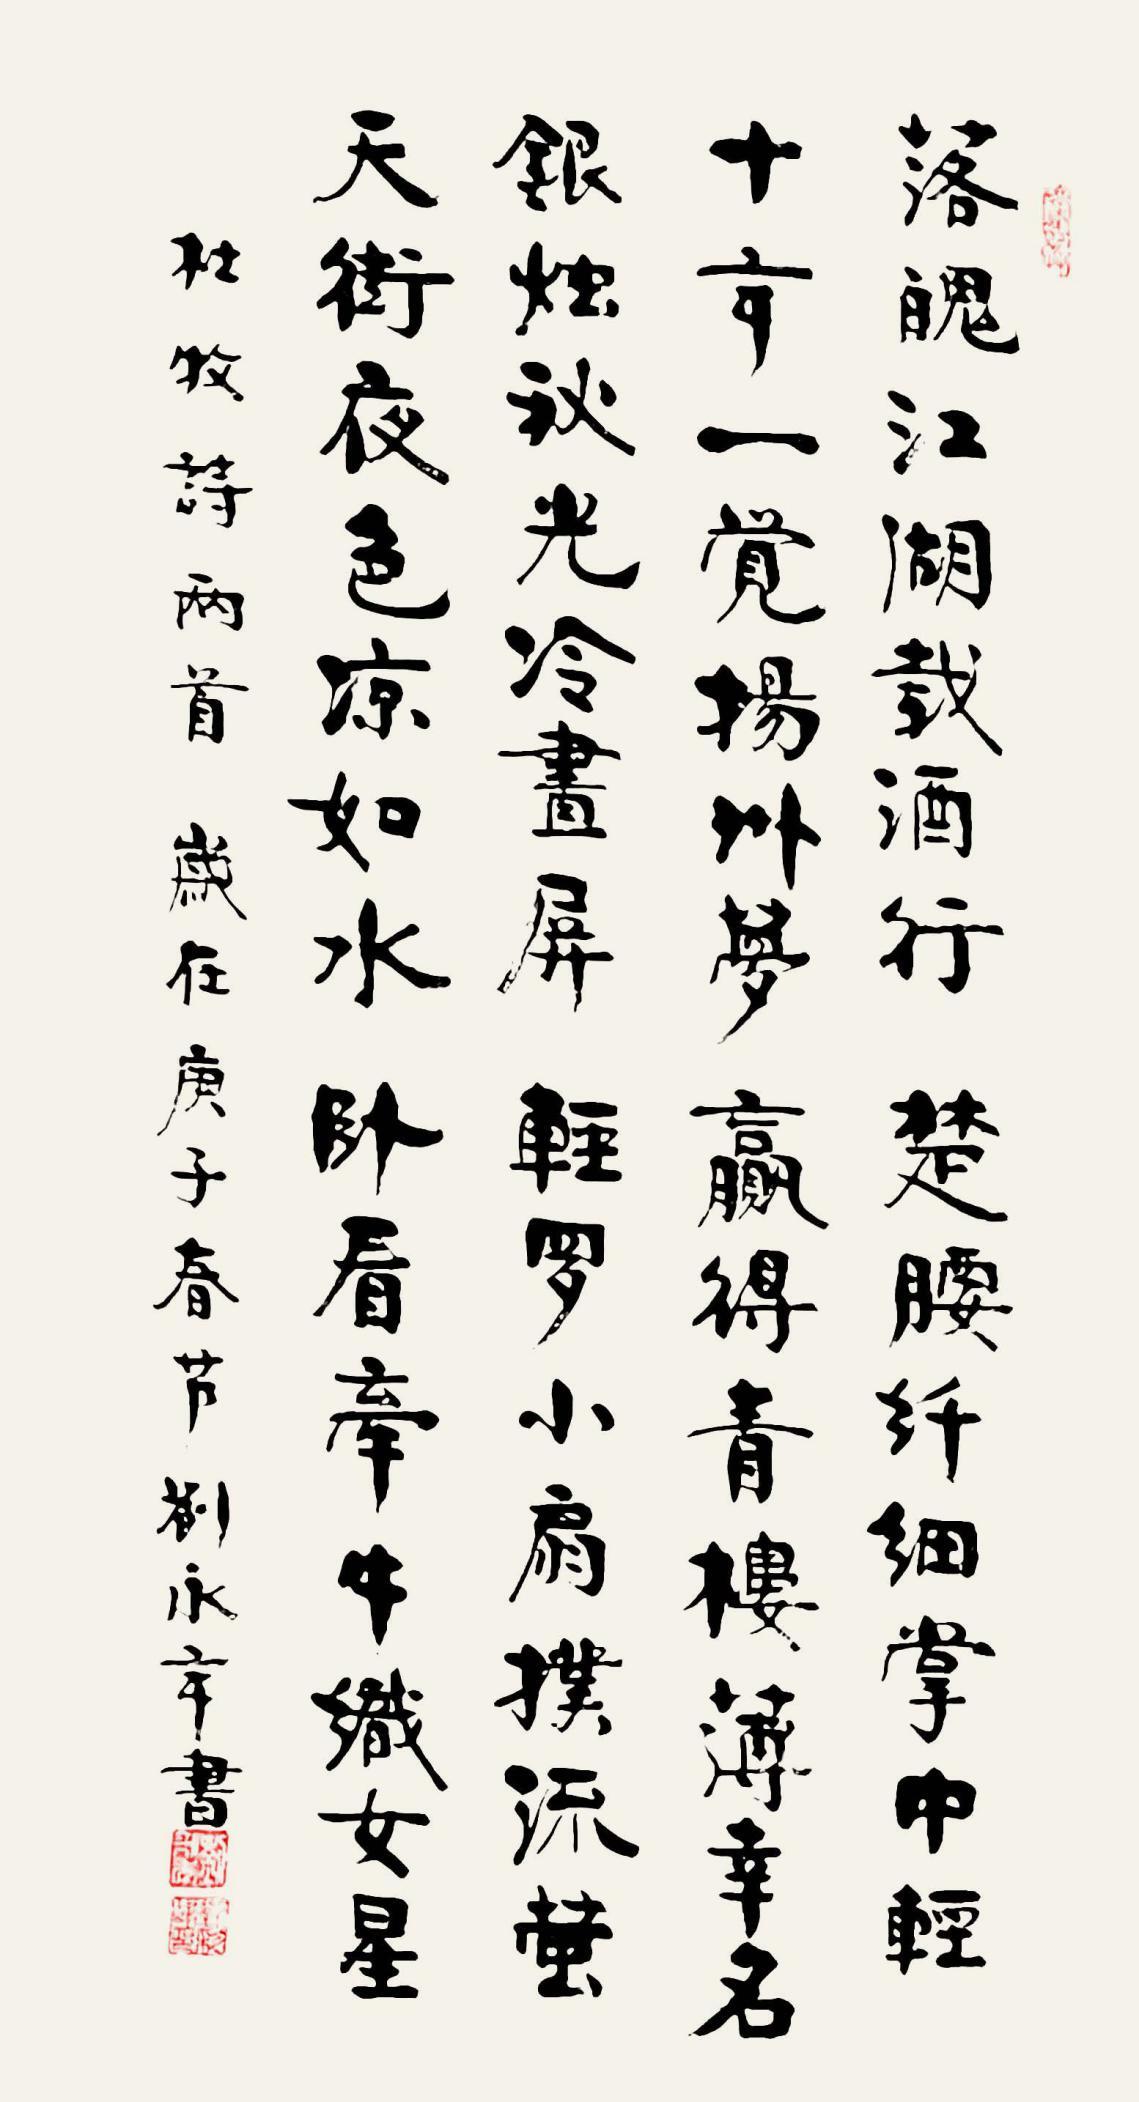 落魄江湖载酒行 楚腰纤细掌中轻
十年一觉揚州夢 赢得青樓薄幸名
銀烛秋光冷畫屏 輕罗小扇撲流萤
天街夜色凉如水 卧看牽牛織女星
杜牧詩两首 歲在庚子春节 劉永年書